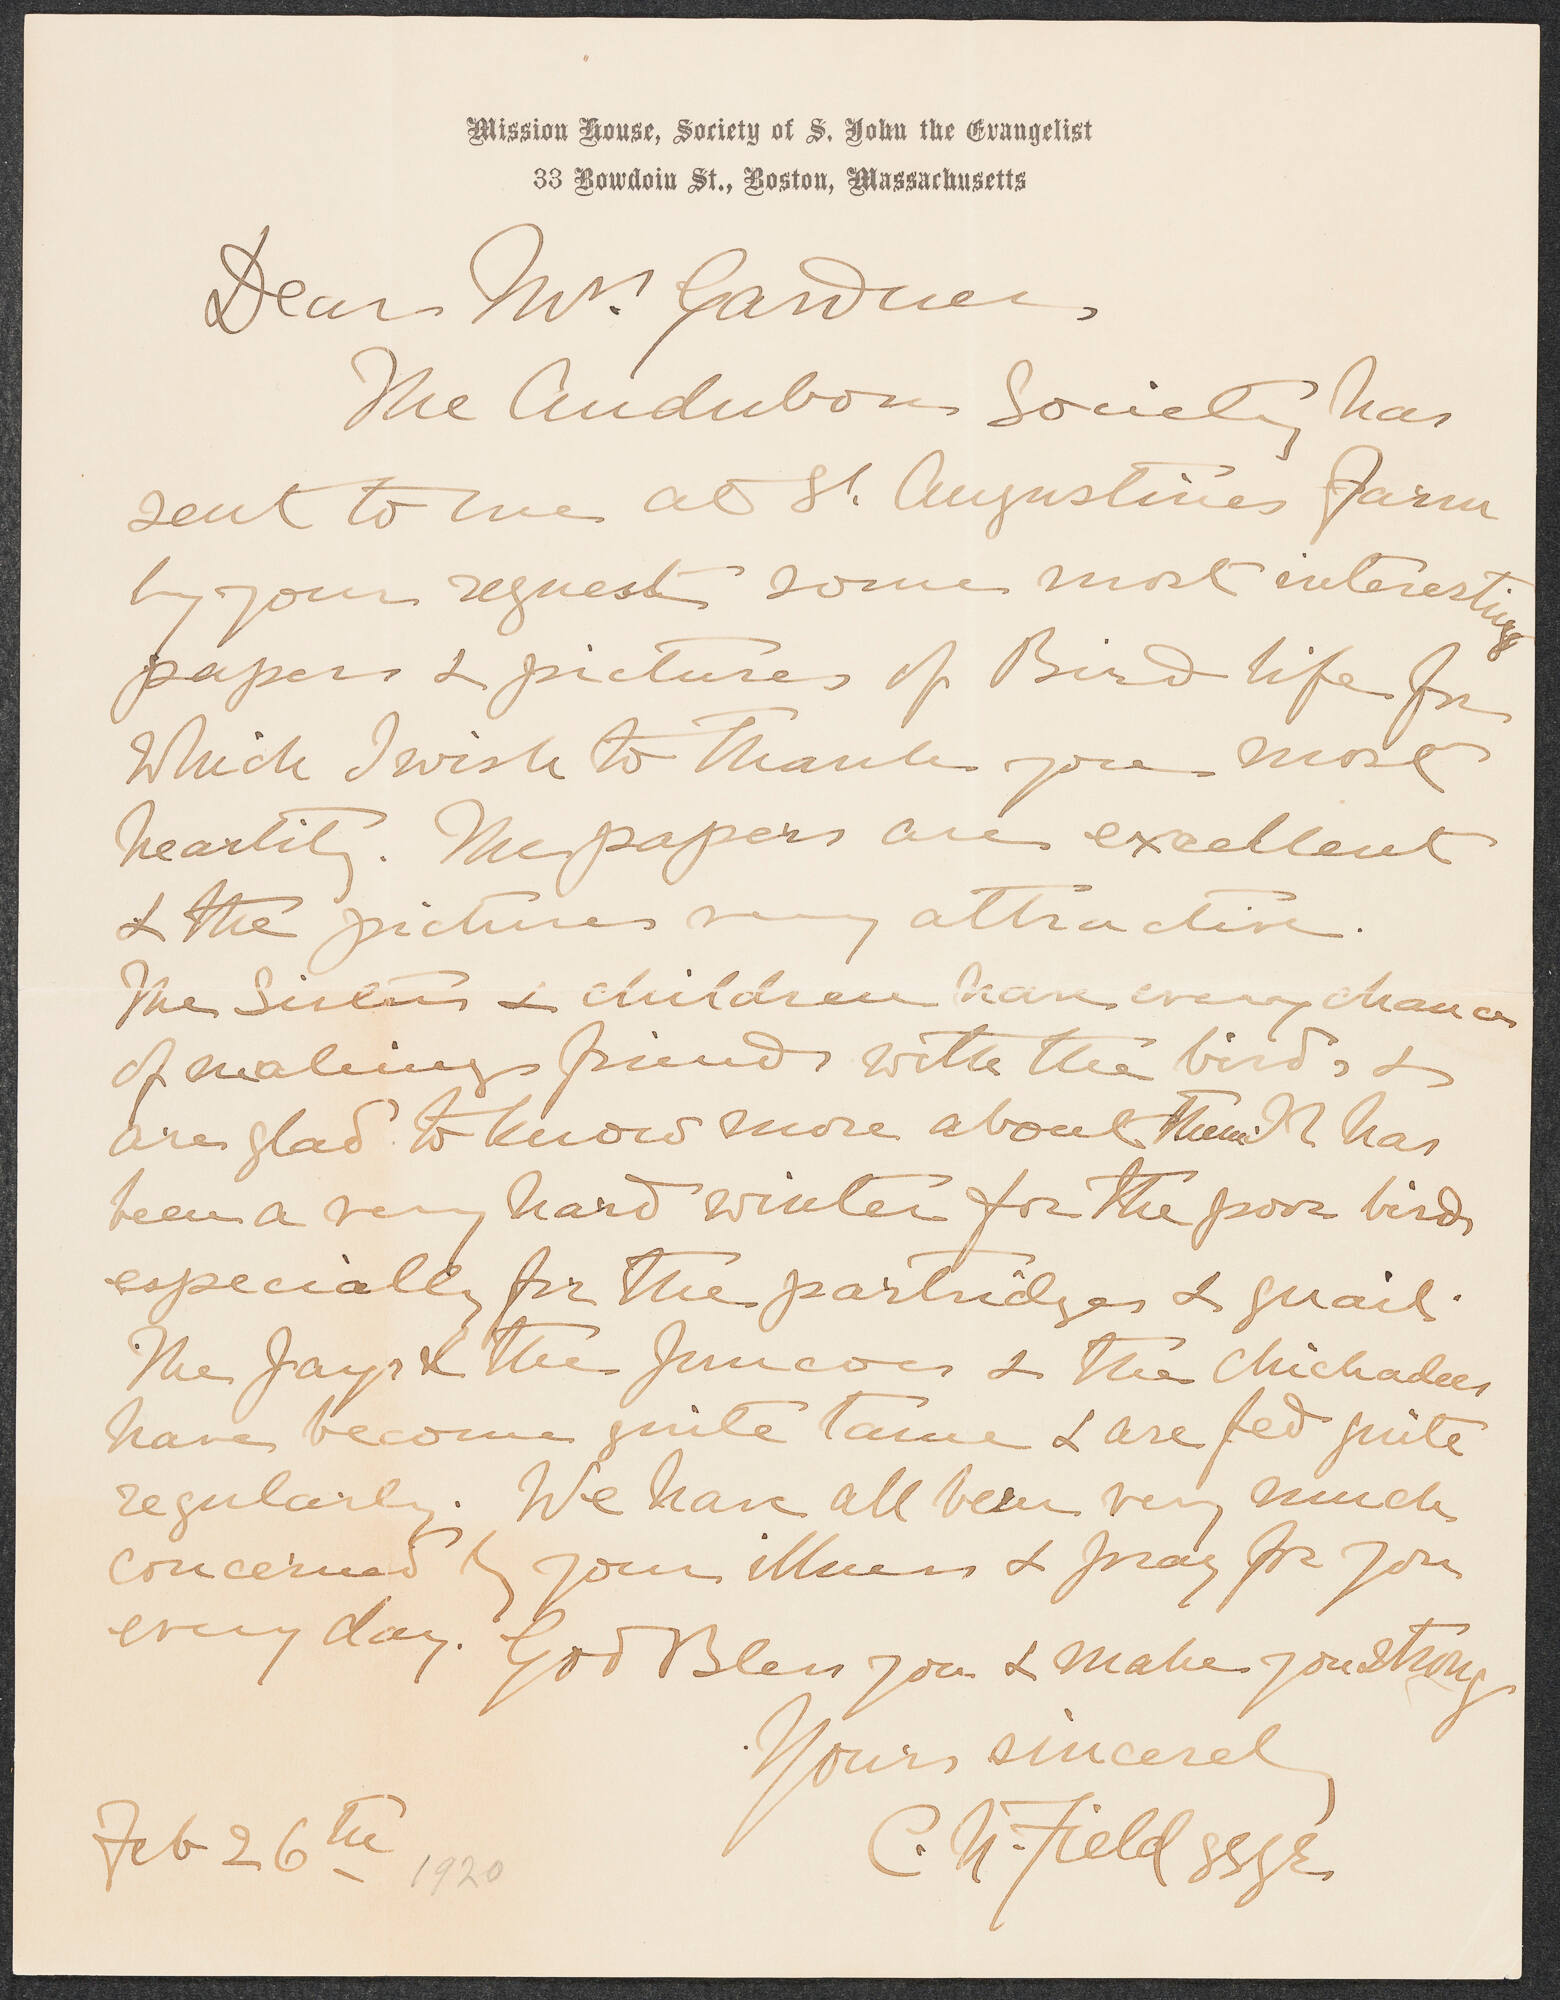 Mission House, Society of S. John the Evangelist
33 Bowdoin St., Boston, Massachusetts
Dear Mrs. Gardner,
The Audubon Society has
sent to me at St. Augustines Farm
by your request some most interesting
papers & pictures of Bird life for
which I wish to thank you most
heartily. The papers are excellent
& the pictures very attractive.
The Sisters & children have every chance
of making friends with the birds &
are glad to know more about them. It has
been a very hard winter for the poor birds
especially for the partridges & quail.
The Jays & the Juncoes & the Chickadees
have become quite tame & are fed quite
regularly. We have all been very much
concerned by your illness & pray for you
every day. God Bless you & make you strong
Yours sincerely
C. N. Field SSJE
Feb 26th 1920